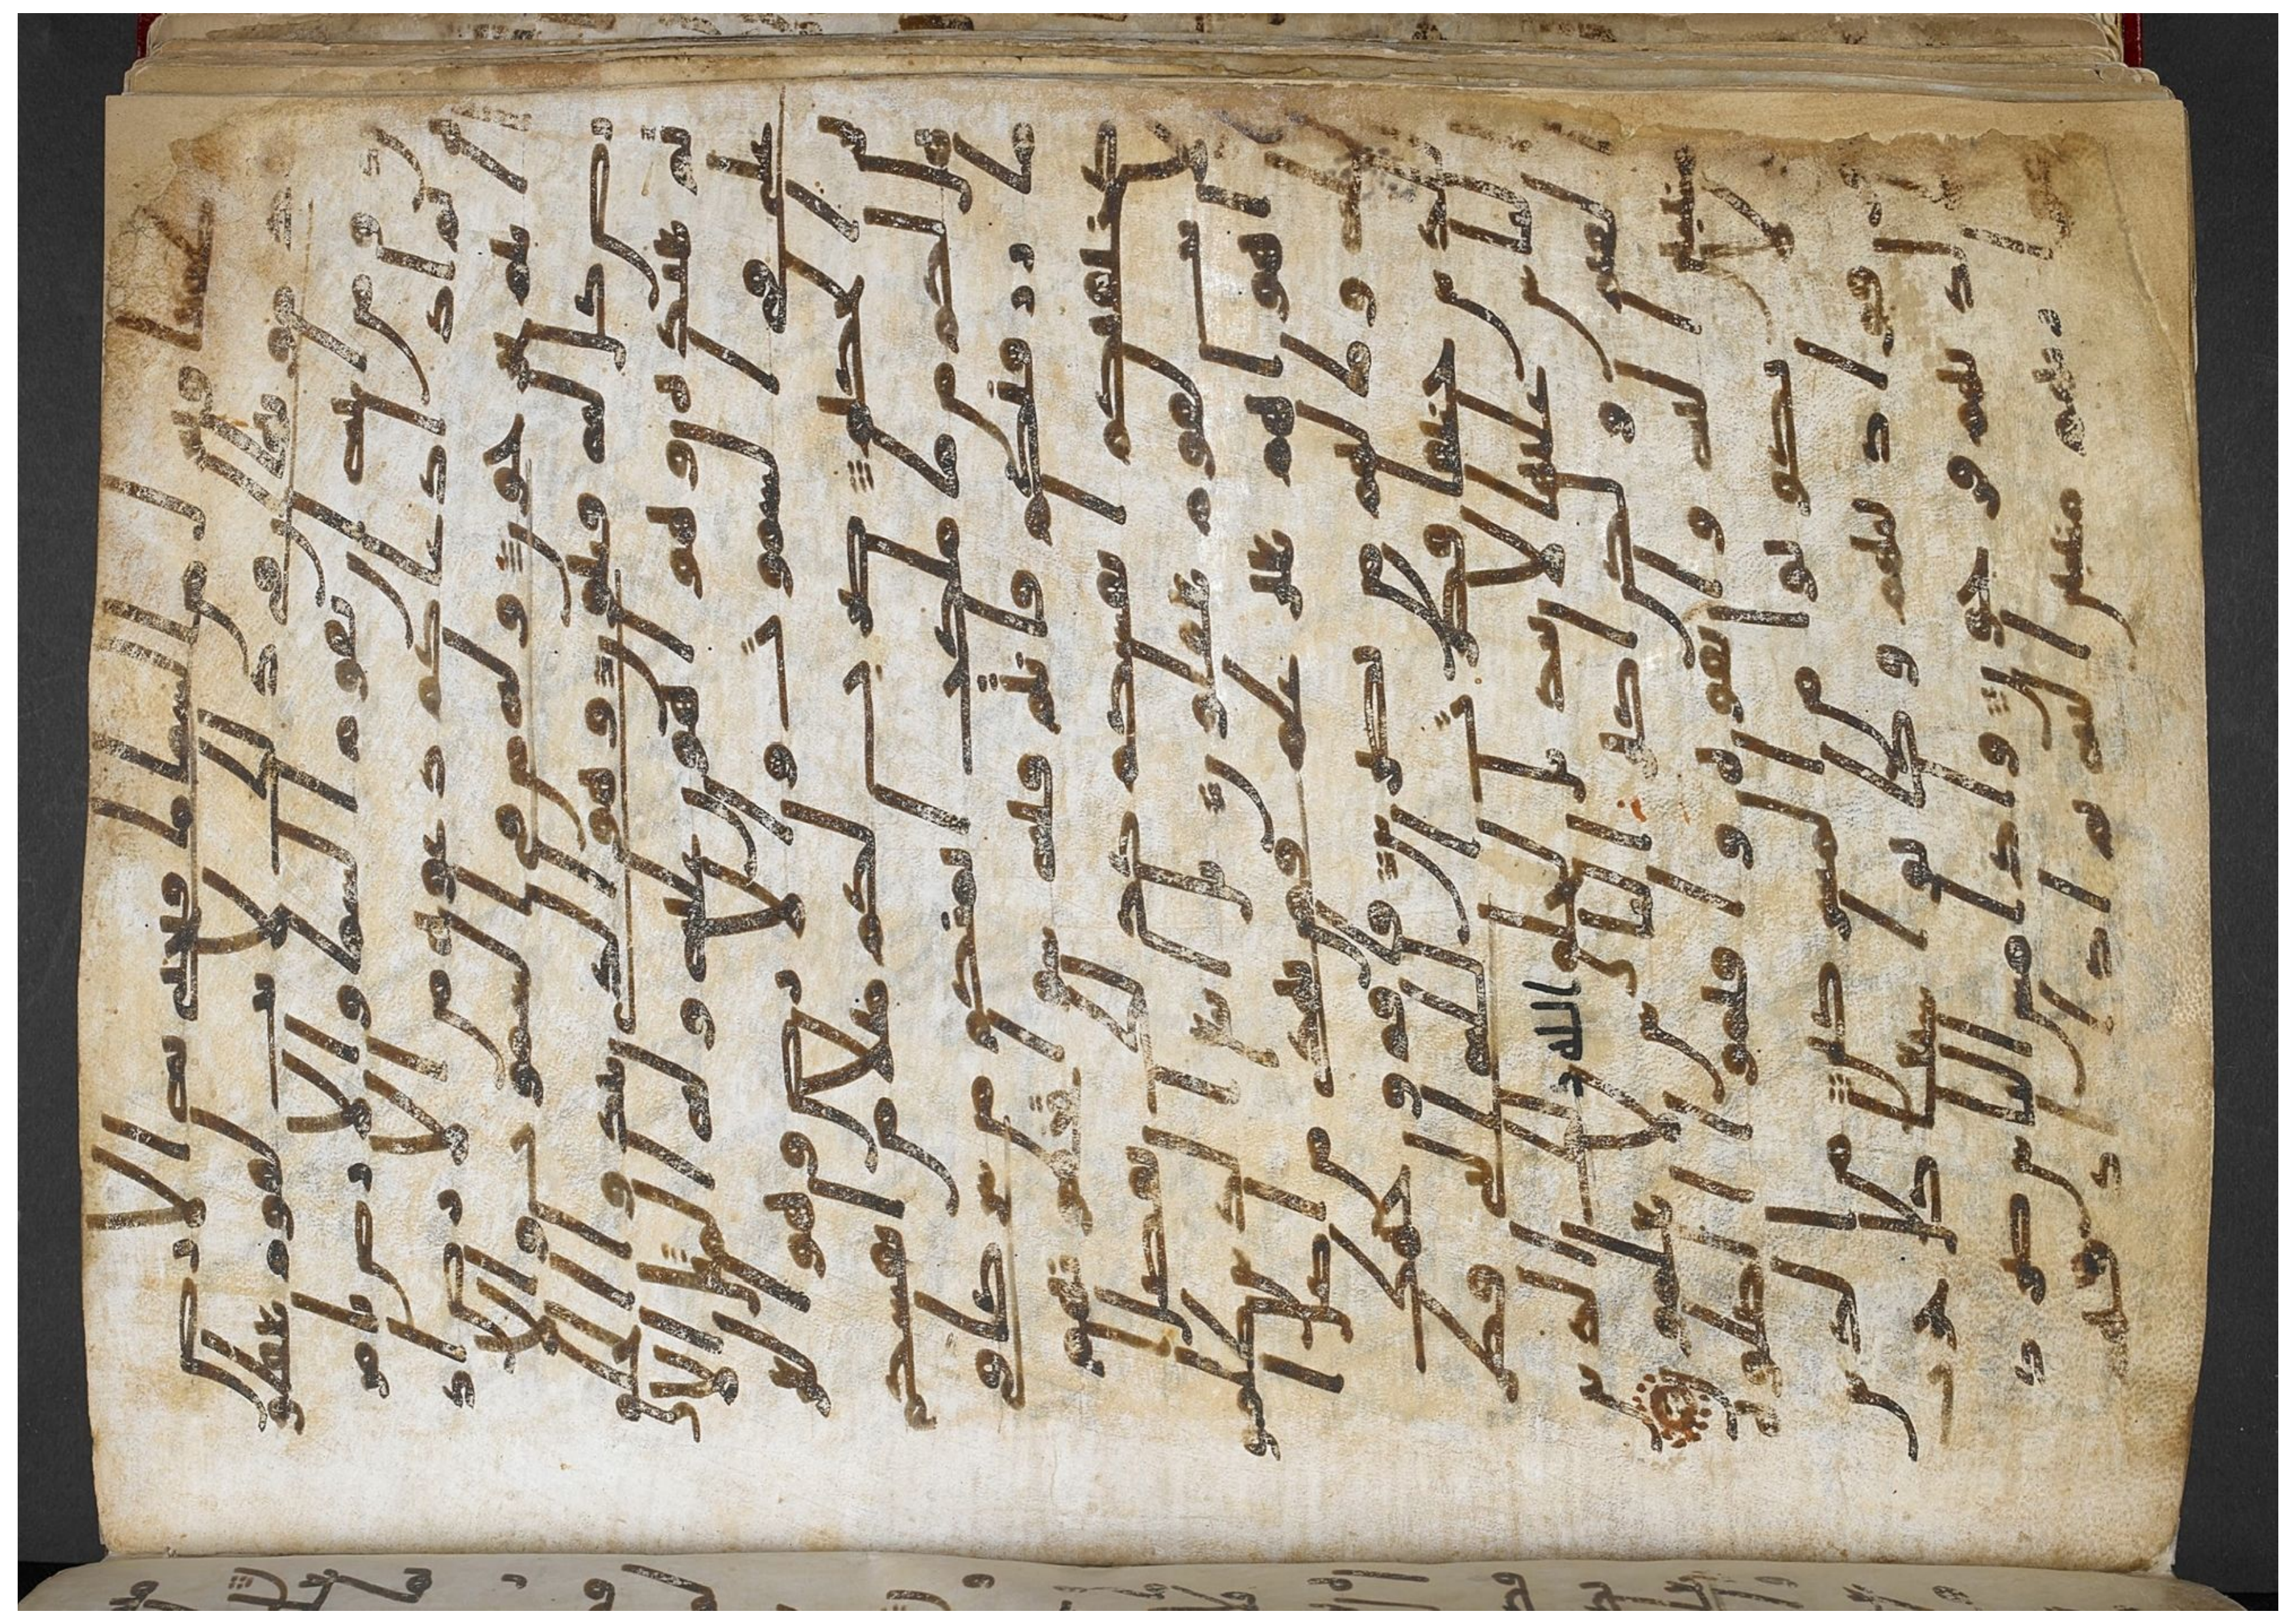 طمعا وينزل من السما ما فيحيي به الارض بعد
موتها ان في ذلك لايت لقوم يعقلو
ن ومن ايته ان تقوم السما والارض بامر
ه ثم اذا دعاكم دعوه من الارض اذا
انتم تخرجون وله من في السموت والا
رض كل له قنتون وهو الذي يبدوا الخلق
ثم يعيده وهو اهون عليه وله المثل الا
على في السموت والارض وهو العزيز ا
لحكيم ضرب لكم مثلا من انفسكم
هل لكم من ما ملكت ايمنكم من شركا في
ما رزقنكم فانتم فيه سوا تخافونهم
كخيفتكم انفسكم كذلك نفصل ا
لايت لقوم يعقلون بل اتبع الذين ظلمو
ا اهواهم بغير علم فمن يهدي من اضل ا
لله وما لهم من نصرين فاقم وجهك
للدين حنيفا فطرت الله التي فطر
الناس عليها لا تبديل لخلق الله ذلك الدين
القيم ولكن اكثر الناس لا يعلمون
منيبين اليه واتقوه واقيموا الصلوه
ولا تكونوا من المشركين من الذين
فرقوا دينهم وكانوا شيعا كل حزب
بما لديهم فرحون واذا مس الناس ضر د
عوا ربهم منيبين اليه ثم اذا اذاقهم